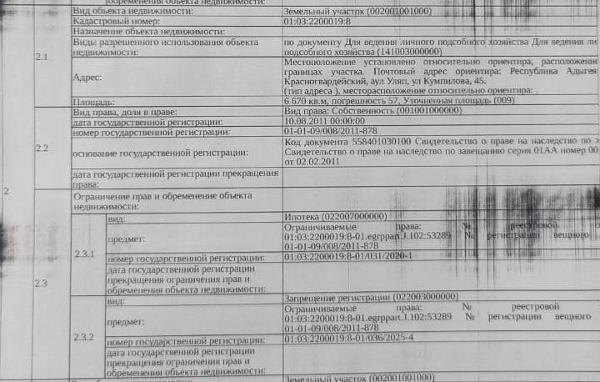 обременения объекта недвижимости:
Вид объекта недвижимости: Земельный участок (002001001000)
Кадастровый номер: 01:03:2200019:8
Назначение объекта недвижимости:
2.1
Виды разрешенного использования объекта недвижимости:
по документу Для ведения личного подсобного хозяйства Для ведения
подсобного хозяйства (141003000000)
Адрес:
Местоположение установлено относительно ориентира,
границах участка. Почтовый адрес ориентира: Республика Адыгея
Красногвардейский, аул Уляп, ул Кумпилова, 45.
(тип адреса ), месторасположение относительно ориентира: .
Площадь: 6 670 кв.м, погрешность 57, Уточненная площадь (009)
2
2.2
Вид права, доля в праве: Вид права: Собственность (001001000000)
дата государственной регистрации: 10.08.2011 00:00:00
номер государственной регистрации: 01-01-09/008/2011-878
основание государственной регистрации:
Код документа 558401030100 Свидетельство о праве на наследство по
Свидетельство о праве на наследство по завещанию серия 01АА номер
от 02.02.2011
дата государственной регистрации прекращения
права:
2.3
Ограничение прав и обременение объекта
недвижимости:
2.3.1
вид: Ипотека (022007000000)
предмет:
Ограничиваемые права: № реестровой
01:03:2200019:8-01.egrppart.J.102:53289 № регистрации вещного
01-01-09/008/2011-878
номер государственной регистрации: 01:03:2200019:8-01/031/2020-1
дата государственной регистрации
прекращения ограничения прав и
обременения объекта недвижимости:
2.3.2
вид: Запрещение регистрации (022003000000)
предмет:
Ограничиваемые права: № реестровой
01:03:2200019:8-01.egrppart.J.102:53289 № регистрации вещного
01-01-09/008/2011-878
номер государственной регистрации: 01:03:2200019:8-01/036/2025-4
дата государственной регистрации
прекращения ограничения прав и
обременения объекта недвижимости:
Земельный участок (002001001000)